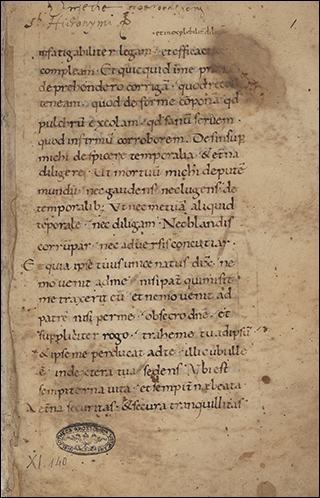 S. Hieronymi
1
et inexplebili dili
infatigabiliter legam. et efficac
compleam. Et quicquid in me
deprehendero corrigā. quod rec
teneam. quod deforme cōponā. qd
pulchrū excolam. qd sanū servem.
quod infirmū corroborem. Des insup
michi despicere temporalia. & etna
diligere. Ut mortuū michi deputem
mundū. nec gaudens nec lugens de
temporalib; Ut nec metuā aliquid
tēporale. nec diligam. Nec blandis
corrūpar. nec adversis concutiar.
Et quia ipse tuus unicenatus dix̄. ne
mo venit ad me. nisi pat̄ qui misit
me traxerit eū. et nemo venit ad
patrē nisi per me. obsecro dn̄e. et
suppliciter rogo. trahe me tu ad ipsū
& ipse me perducat ad te. illic ubi ille
ē in dextera tua sedens. Ubi est
sempiterna vita. et sempitna beata
Aetna securitas. & secura tranquillitas
XI. 140